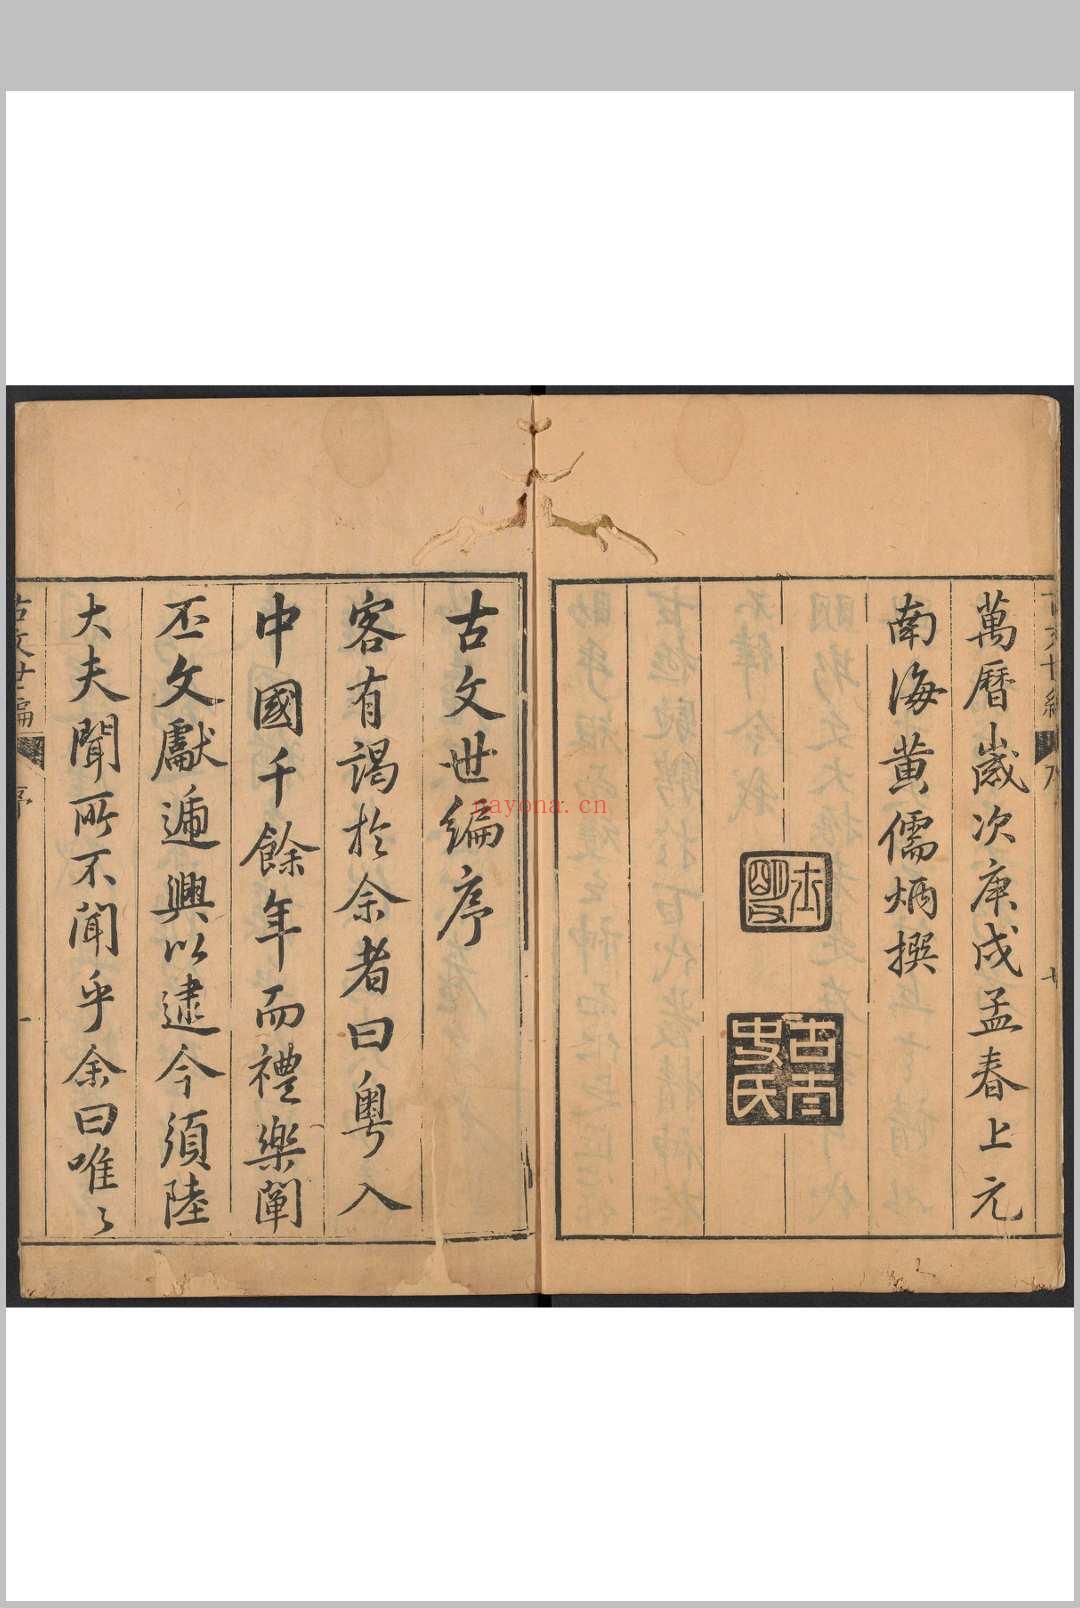 萬曆歲次庚戌孟春上元
南海黄儒炳撰
古文世編序
客有謁於余者曰粤入
中國千餘年而禮樂闡
丕文獻遞興以逮今須陸
大夫聞所不聞乎余曰唯〻
古文世編
序
一
nayona.cn